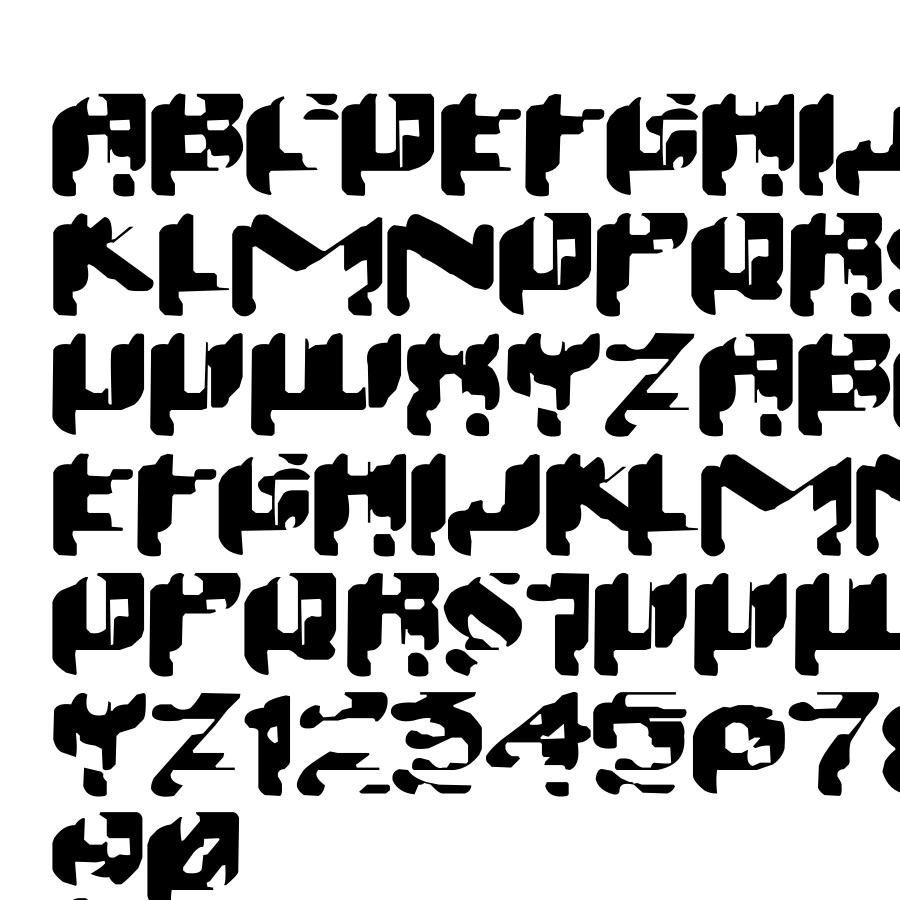 ABCDEFGHIJ
KLMNOPQRS
UVWXYZABC
EFGHIJKLMN
OPQRSTUVW
YZ12345678
90